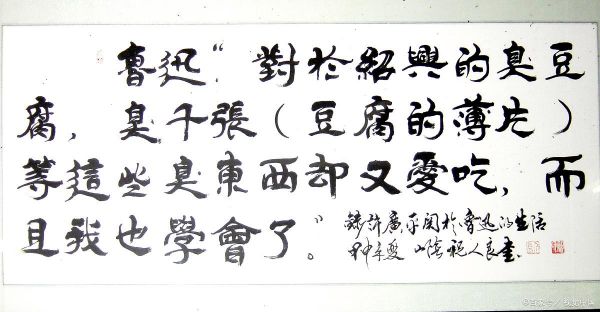 魯迅“對於紹興的臭豆
腐，臭千張（豆腐的薄片）
等這些臭東西却又愛吃，而
且我也學會了。”
錄許廣平関於魯迅的生活
甲申年夏 山陰祝人良書